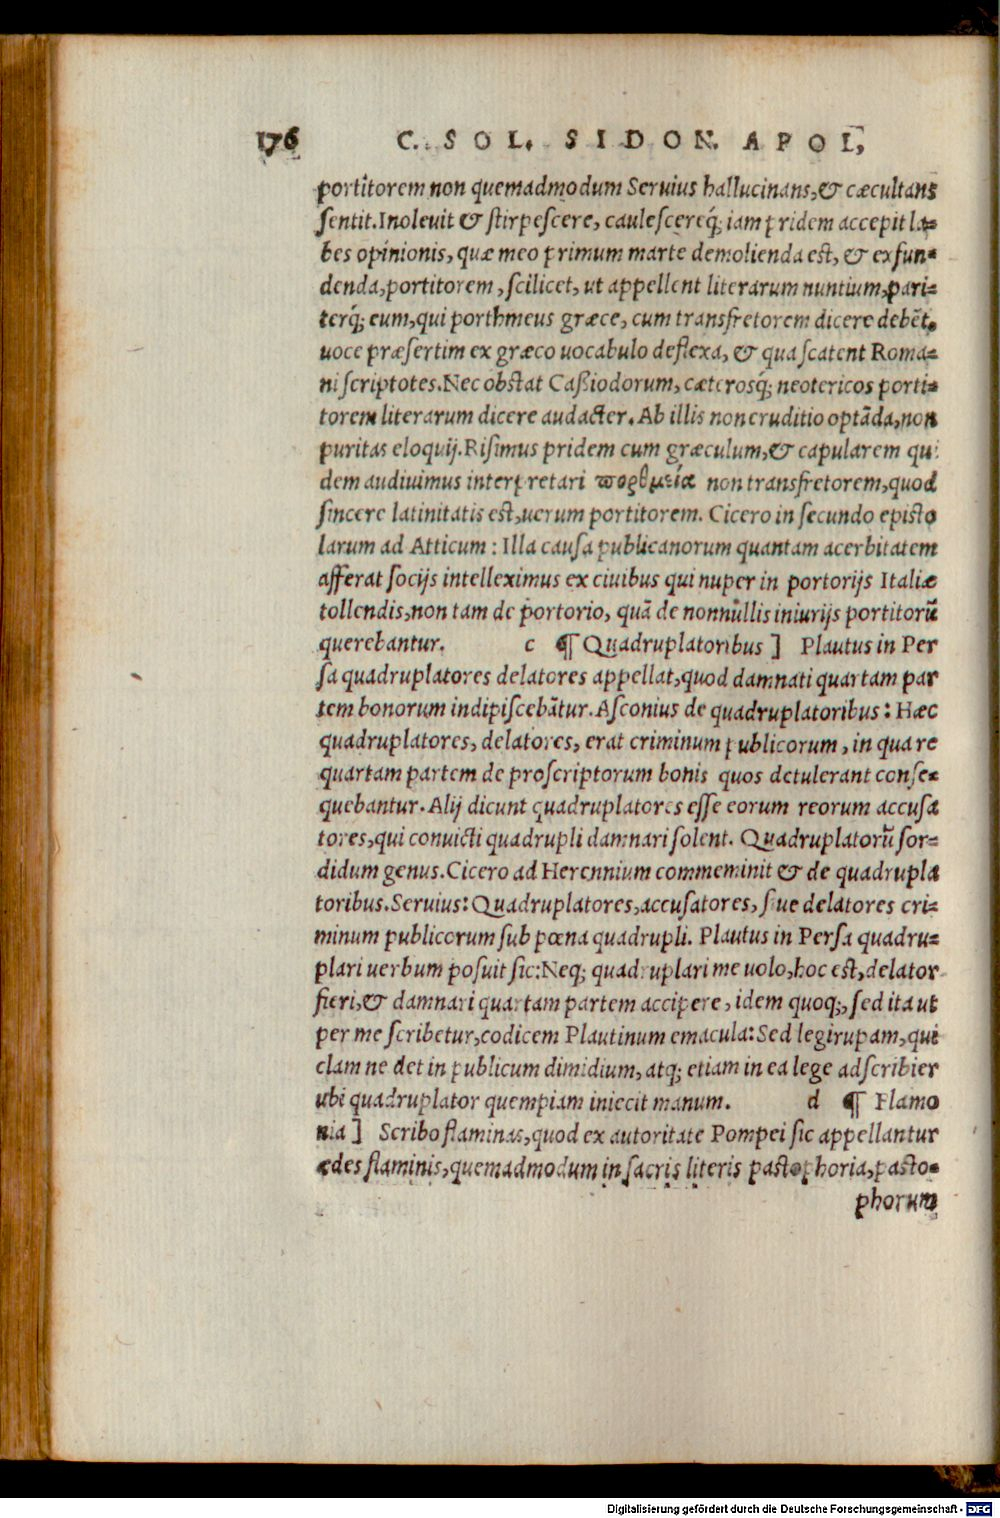 176 C. SOL. SIDON. APOL,
portitorem non quemadmodum Seruius hallucinans, & cæcultans
sentit. Inoleuit & stirpescere, caulescereq́; iam pridem accepit la-
bes opinionis, quæ meo primum marte demolienda est, & exfun-
denda, portitorem, scilicet, ut appellent literarum nuntium, pari-
terq́; eum, qui porthmeus græce, cum transfretorem dicere debẽt,
uoce præsertim ex græco uocabulo deflexa, & qua scatent Roma-
ni scriptotes. Nec obstat Caßiodorum, cæterosq́; neotericos porti-
torem literarum dicere audacter. Ab illis non eruditio optãda, non
puritas eloquij. Risimus pridem cum græculum, & capularem qui
dem audiuimus interpretari πορθμεία non transfretorem, quod
sincere latinitatis est, uerum portitorem. Cicero in secundo episto
larum ad Atticum : Illa causa publicanorum quantam acerbitatem
afferat socijs intelleximus ex ciuibus qui nuper in portorijs Italiæ
tollendis, non tam de portorio, quã de nonnullis iniurijs portitorũ
querebantur. c ¶ Quadruplatoribus ] Plautus in Per
sa quadruplatores delatores appellat, quod damnati quartam par
tem bonorum indipiscebãtur. Asconius de quadruplatoribus : Hæc
quadruplatores, delatores, erat criminum publicorum, in qua re
quartam partem de proscriptorum bonis quos detulerant conse-
quebantur. Alij dicunt quadruplatores esse eorum reorum accusa
tores, qui conuicti quadrupli damnari solent. Quadruplatorũ sor-
didum genus. Cicero ad Herennium commeminit & de quadrupla
toribus. Seruius: Quadruplatores, accusatores, siue delatores cri-
minum publicorum sub pœna quadrupli. Plautus in Persa quadru-
plari uerbum posuit sic: Neq; quadruplari me uolo, hoc est, delator
fieri, & damnari quartam partem accipere, idem quoq;, sed ita ut
per me scribetur, codicem Plautinum emacula: Sed legirupam, qui
clam ne det in publicum dimidium, atq; etiam in ea lege adscribier
ubi quadruplator quempiam iniecit manum. d ¶ Flamo
nia ] Scribo flaminas, quod ex autoritate Pompei sic appellantur
ædes flaminis, quemadmodum in sacris literis pastophoria, pasto-
phorum
Digitalisierung gefördert durch die Deutsche Forschungsgemeinschaft - DFG